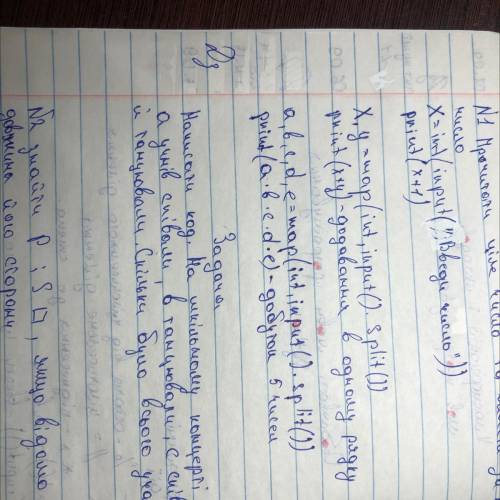 N1 Прочитати ціле число
число
X=int(input("Введи число"))
print(x+1)
X,y=map(int,input().split())
print(x+y)-додавання в одному рядку
a,b,c,d,e=map(int,input().split())
print(a·b·c·d·e)-добуток 5 чисел
Дз
Задача.
Написати код. На шкільному концерті
а учнів співали, в танцювали, с спів
й танцювали. Скільки було всього уча
N2 знайти P і S □, якщо відомо
довжина його сторони.